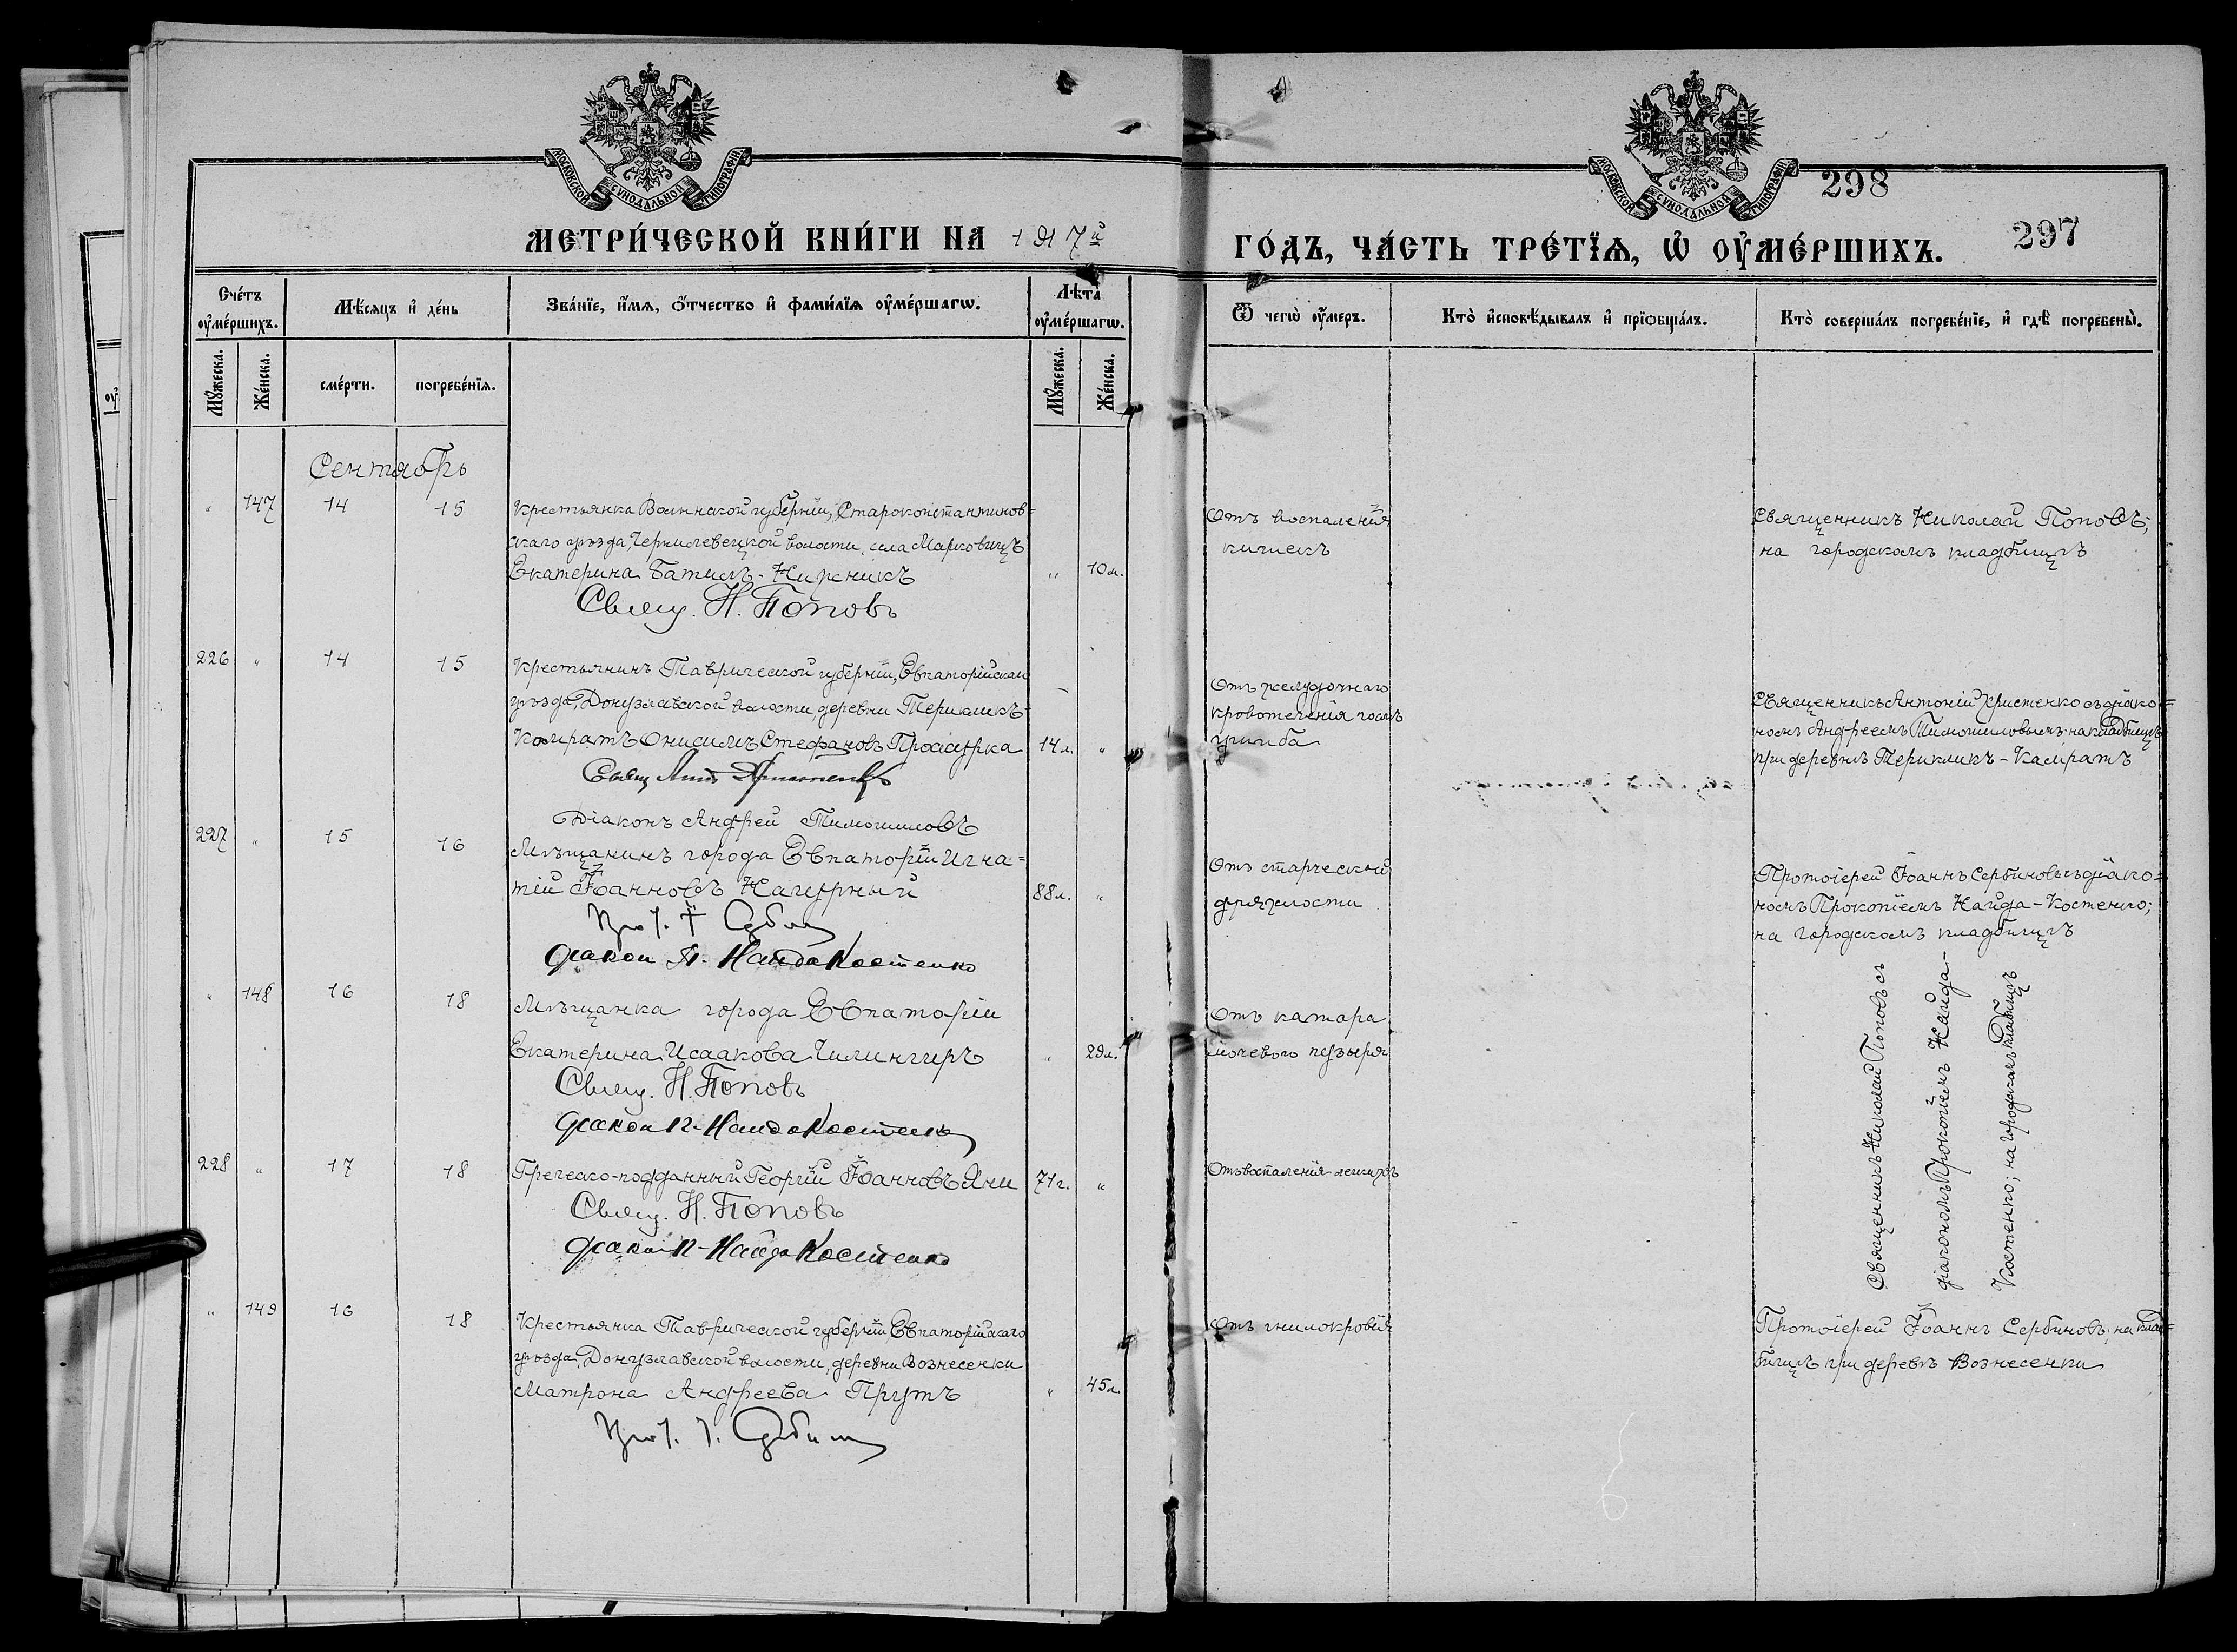 МОСКОВСКОЙ СУНОДАЛЬНОЙ ТИПОГРАФІИ
МОСКОВСКОЙ СУНОДАЛЬНОЙ ТИПОГРАФІИ
298
297
МЕТРИ́ЧЕСКОЙ КНИ́ГИ НА 1917й
ГО́ДЪ, ЧА́СТЬ ТРЕ́ТЇѦ, Ѡ҆ ОУ҆МЕ́РШИХЪ.
Сче́тъ оу҆ме́ршихъ.
Мѣ́сяцъ и҆ де́нь
Зва́нїе, и҆́мѧ, ѻ҆́тчество и҆ фами́лїѧ оу҆ме́ршагѡ.
Лѣ́та оу҆ме́ршагѡ.
Ѿ чегѡ̀ оу҆́меръ.
Кто̀ и҆сповѣ́дывалъ и҆ прїѡбща́лъ.
Кто̀ соверша́лъ погребе́нїе, и҆ гдѣ̀ погребены̀.
Мꙋ́жеска.
Же́нска.
сме́рти.
погребе́нїѧ.
Мꙋ́жеска.
Же́нска.
Сентябрь
" 147 14 15
Крестьянка Волынской губерніи, Староконстантинов=
скаго уѣзда, Чернелевецкой волости, села Марковицъ
Екатерина Батилъ-Нижникъ " 10 м.
Свящ. Н. Поповъ
Отъ воспаленія
кишекъ
Священникъ Николай Поповъ;
на городскомъ кладбищѣ
226 " 14 15
Крестьянинъ Таврической губерніи, Евпаторійскаго
уѣзда, Донузлавской волости, деревни Терикликъ-
Кашратъ Онисимъ Стефановъ Просурка 14 л. "
Свящ. Ант. Христенко
Діаконъ Андрей Тимошиловъ
Отъ желудочнаго
кровотеченія послѣ
ушиба
Священникъ Антоній Христенко съ діако=
номъ Андреемъ Тимошиловымъ на кладбищѣ
при деревнѣ Терикликъ-Кашратъ
227 " 15 16
Мѣщанинъ города Евпаторіи Игна=
тій Іоанновъ Нагурный 88 л. "
Прот. І. Сербинов
діакон П. Найда Костенко
Отъ старческой
дряхлости
Протоіерей Іоаннъ Сербиновъ съ діако=
номъ Прокопіемъ Найда-Костенко;
на городскомъ кладбищѣ
" 148 16 18
Мѣщанка города Евпаторіи
Екатерина Исаакова Чилингиръ " 29 л.
Свящ. Н. Поповъ
діакон П. Найда Костенко
Отъ катара
мочевого пузыря
Священникъ Николай Поповъ съ
діакономъ Прокопіемъ Найда-
Костенко; на городскомъ кладбищѣ
228 " 17 18
Греческо-подданный Георгій Іоанновъ Яни 71 г. "
Свящ. Н. Поповъ
діакон П. Найда Костенко
Отъ воспаленія легкихъ
" 149 16 18
Крестьянка Таврической губерніи Евпаторійскаго
уѣзда, Донузлавской волости, деревни Вознесенки
Матрона Андреева Прутъ " 45 л.
Прот. І. Сербинов
Отъ гнилокровія
Протоіерей Іоаннъ Сербиновъ; на клад=
бищѣ при деревнѣ Вознесенки